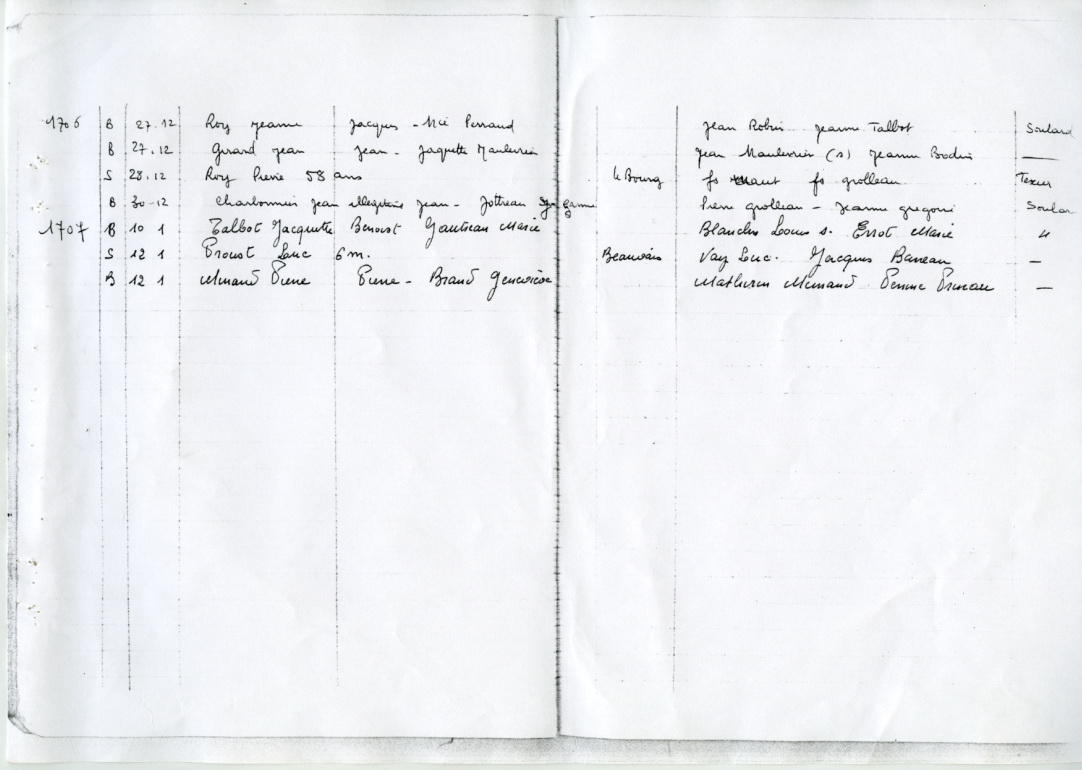 1706 B 27.12 Roy Jeanne Jacques - Mie Perraud Jean Robin Jeanne Talbot Soulard
B 27.12 Girard Jean Jean - Jaquette Maulevrier Jean Maulevrier (s) Jeanne Bodin —
S 28.12 Roy Pierre 58 ans le Bourg fs fs grolleau Texier
B 30-12 Charbonnier Jean Jean - Jottreau Pierre grolleau - Jeanne gregoire Soular
1707 B 10 1 Talbot Jacquette Benoist Gautreau Marie Blanchn Louis s. Errot Marie "
S 12 1 Proust Luc 6 m. Beauvais Vay Luc. Jacques Bareau —
B 12 1 Menard Pierre Pierre - Braud Geneviève Mathurin Menard —